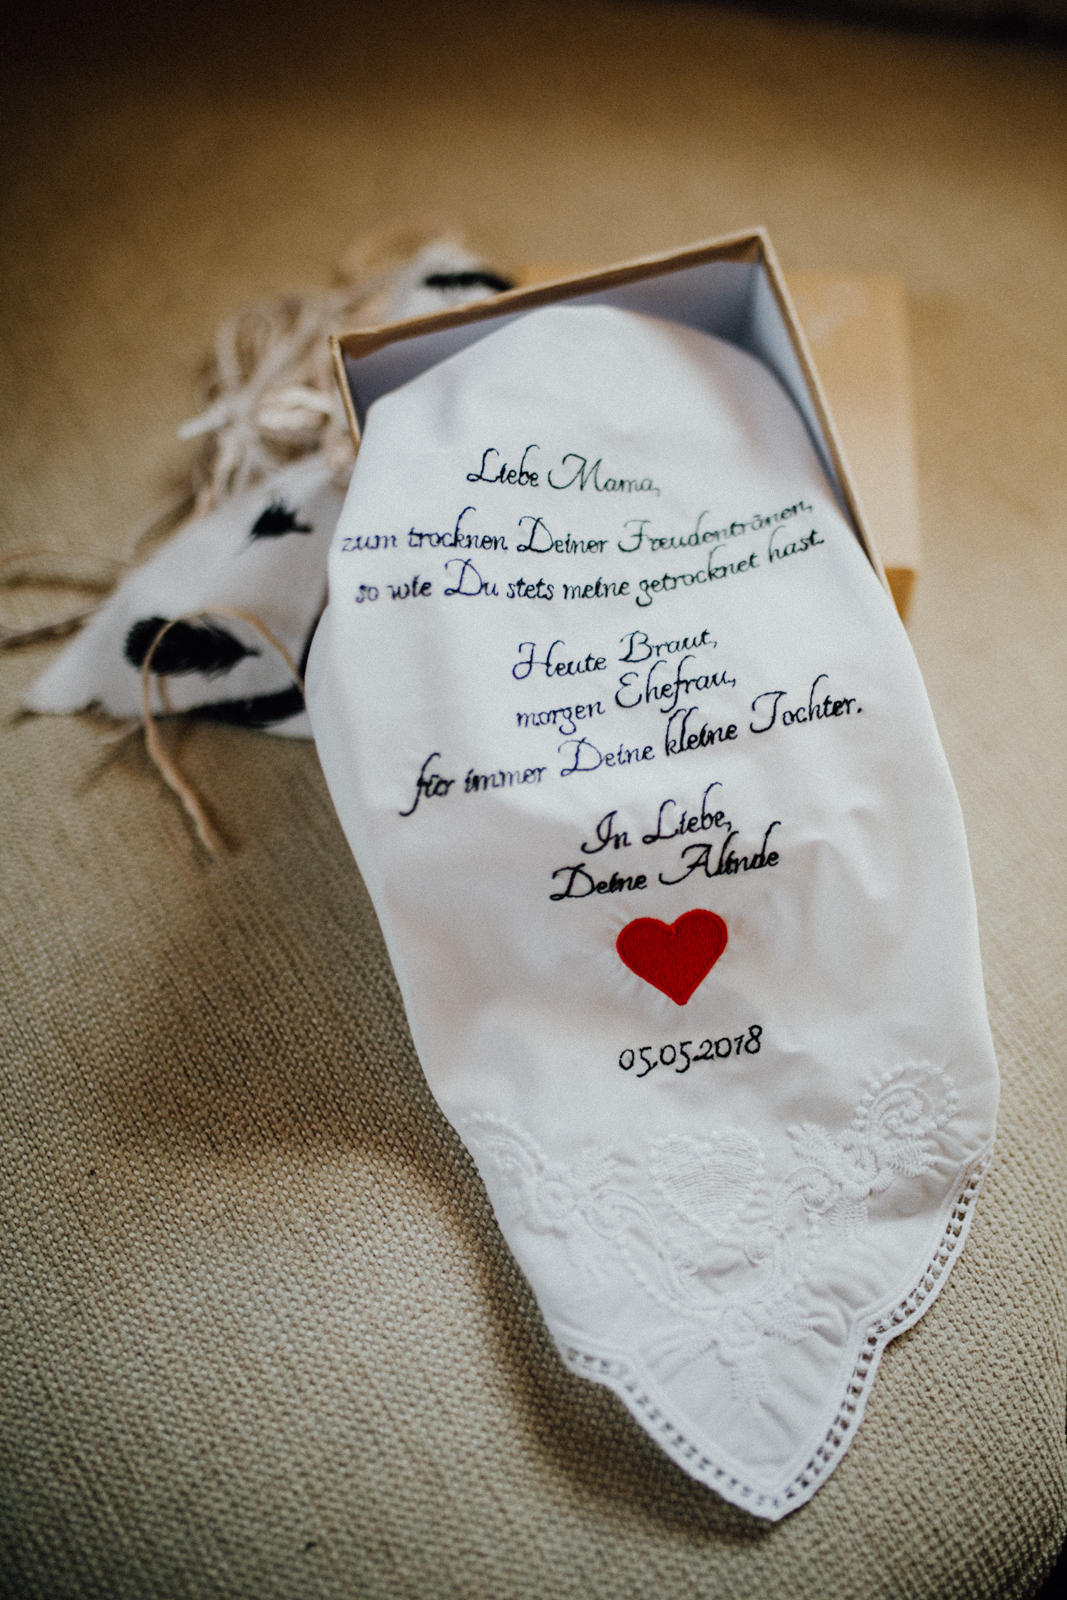 Liebe Mama,
zum trocknen Deiner Freudentränen,
so wie Du stets meine getrocknet hast.
Heute Braut,
morgen Ehefrau,
für immer Deine kleine Tochter.
In Liebe,
Deine Alinde
05.05.2018